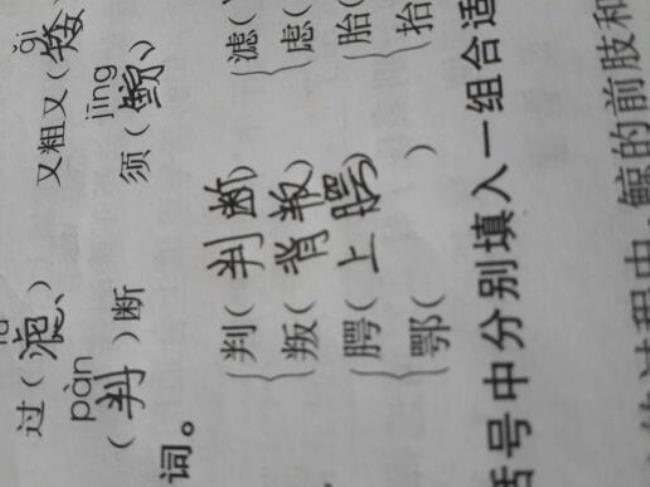 ǎi
过(滤、) 又粗又(矮)
pàn jīng
(判)断 须(鲸、)
词。
判(判断) 滤(
叛(背叛) 虑(
腭(上腭) 胎(
鄂( ) 抬(
号中分别填入一组合适
过程中,鲸的前肢和